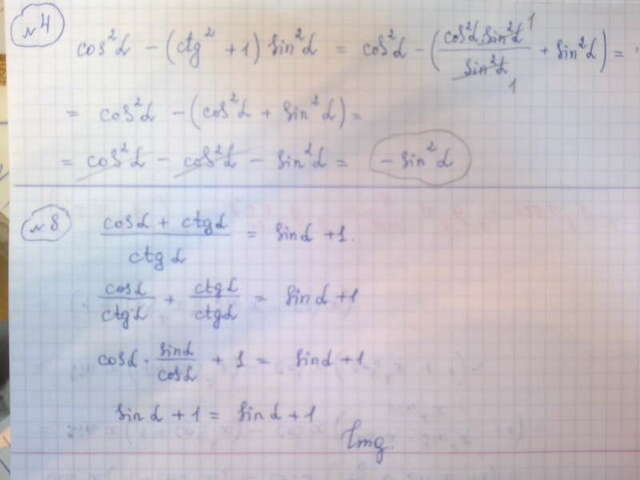 №4
cos²α − (ctg² + 1) sin²α = cos²α − (cos²α sin²α 1 / sin²α 1 + sin²α) =
= cos²α − (cos²α + sin²α) =
= cos²α − cos²α − sin²α = − sin²α
№8
cosα + ctgα / ctgα = sinα + 1.
cosα / ctgα + ctgα / ctgα = sinα + 1
cosα · sinα / cosα + 1 = sinα + 1
sinα + 1 = sinα + 1